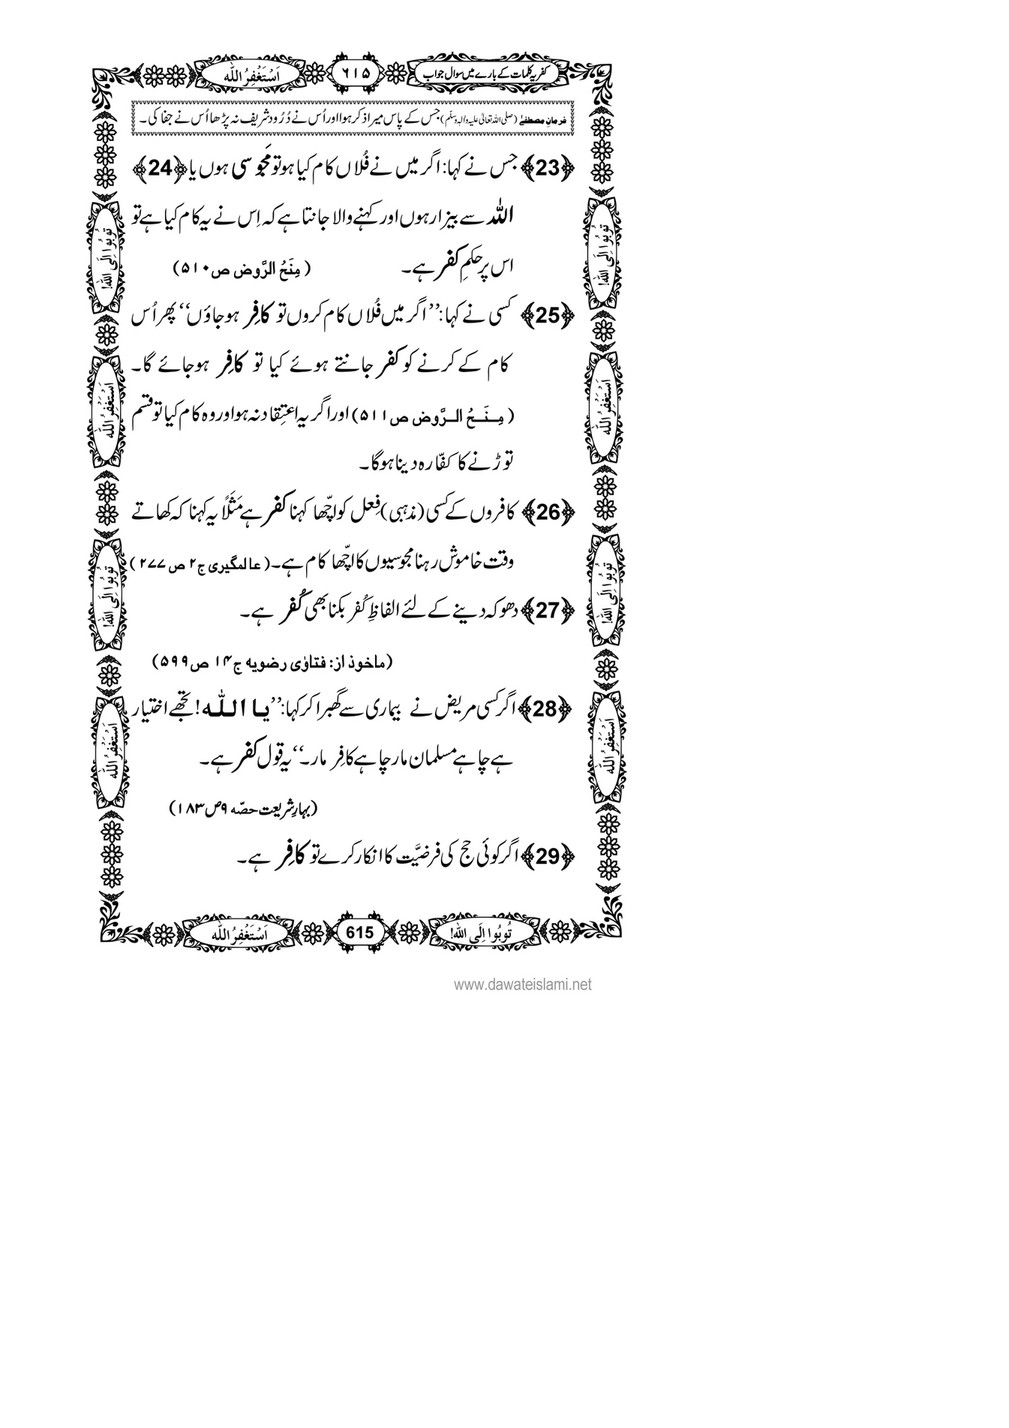 کفریہ کلمات کے بارے میں سوال جواب
٦١٥
اَسْتَغْفِرُ اللّٰه
فرمانِ مصطفٰے (صلی اللہ تعالیٰ علیہ والہٖ وسلّم) جس کے پاس میرا ذکر ہوا اور اُس نے دُرُود شریف نہ پڑھا اُس نے جفا کی۔
﴿23﴾ جس نے کہا: اگر میں نے فُلاں کام کیا ہو تو مَجُوسی ہوں یا ﴿24﴾
اللہ سے بیزار ہوں اور کہنے والا جانتا ہے کہ اِس نے یہ کام کیا ہے تو
اس پر حکمِ کفر ہے۔ (مِنَحُ الرَّوض ص۵۱۰)
﴿25﴾ کسی نے کہا: ’’اگر میں فُلاں کام کروں تو کافِر ہو جاؤں‘‘ پھر اُس
کام کے کرنے کو کفر جانتے ہوئے کیا تو کافِر ہو جائے گا۔
(مِنَحُ الرَّوض ص۵۱۱) اور اگر یہ اعتِقاد نہ ہو اور وہ کام کیا تو قسم
توڑنے کا کفّارہ دینا ہوگا۔
﴿26﴾ کافروں کے کسی (مذہبی) فِعل کو اچّھا کہنا کفر ہے مَثَلاً یہ کہنا کہ کھاتے
وقت خاموش رہنا مجوسیوں کا اچّھا کام ہے۔ (عالمگیری ج۲ ص۲۷۷)
﴿27﴾ دھوکہ دینے کے لئے الفاظِ کُفر بکنا بھی کُفر ہے۔
(ماخوذ از: فتاوٰی رضویه ج۱۴ ص۵۹۹)
﴿28﴾ اگر کسی مریض نے بیماری سے گھبرا کر کہا: ’’یا اللہ! تجھے اختیار
ہے چاہے مسلمان مار چاہے کافِر مار۔‘‘ یہ قول کفر ہے۔
(بہارِ شریعت حصّہ ۹ ص۱۸۳)
﴿29﴾ اگر کوئی حج کی فرضیَّت کا انکار کرے تو کافِر ہے۔
تُوبُوا اِلَی اللّٰه!
اَسْتَغْفِرُ اللّٰه
تُوبُوا اِلَی اللّٰه!
اَسْتَغْفِرُ اللّٰه
تُوبُوا اِلَی اللّٰه!
اَسْتَغْفِرُ اللّٰه
تُوبُوا اِلَی اللّٰه!
اَسْتَغْفِرُ اللّٰه
تُوبُوا اِلَی اللّٰه!
615
اَسْتَغْفِرُ اللّٰه
www.dawateislami.net